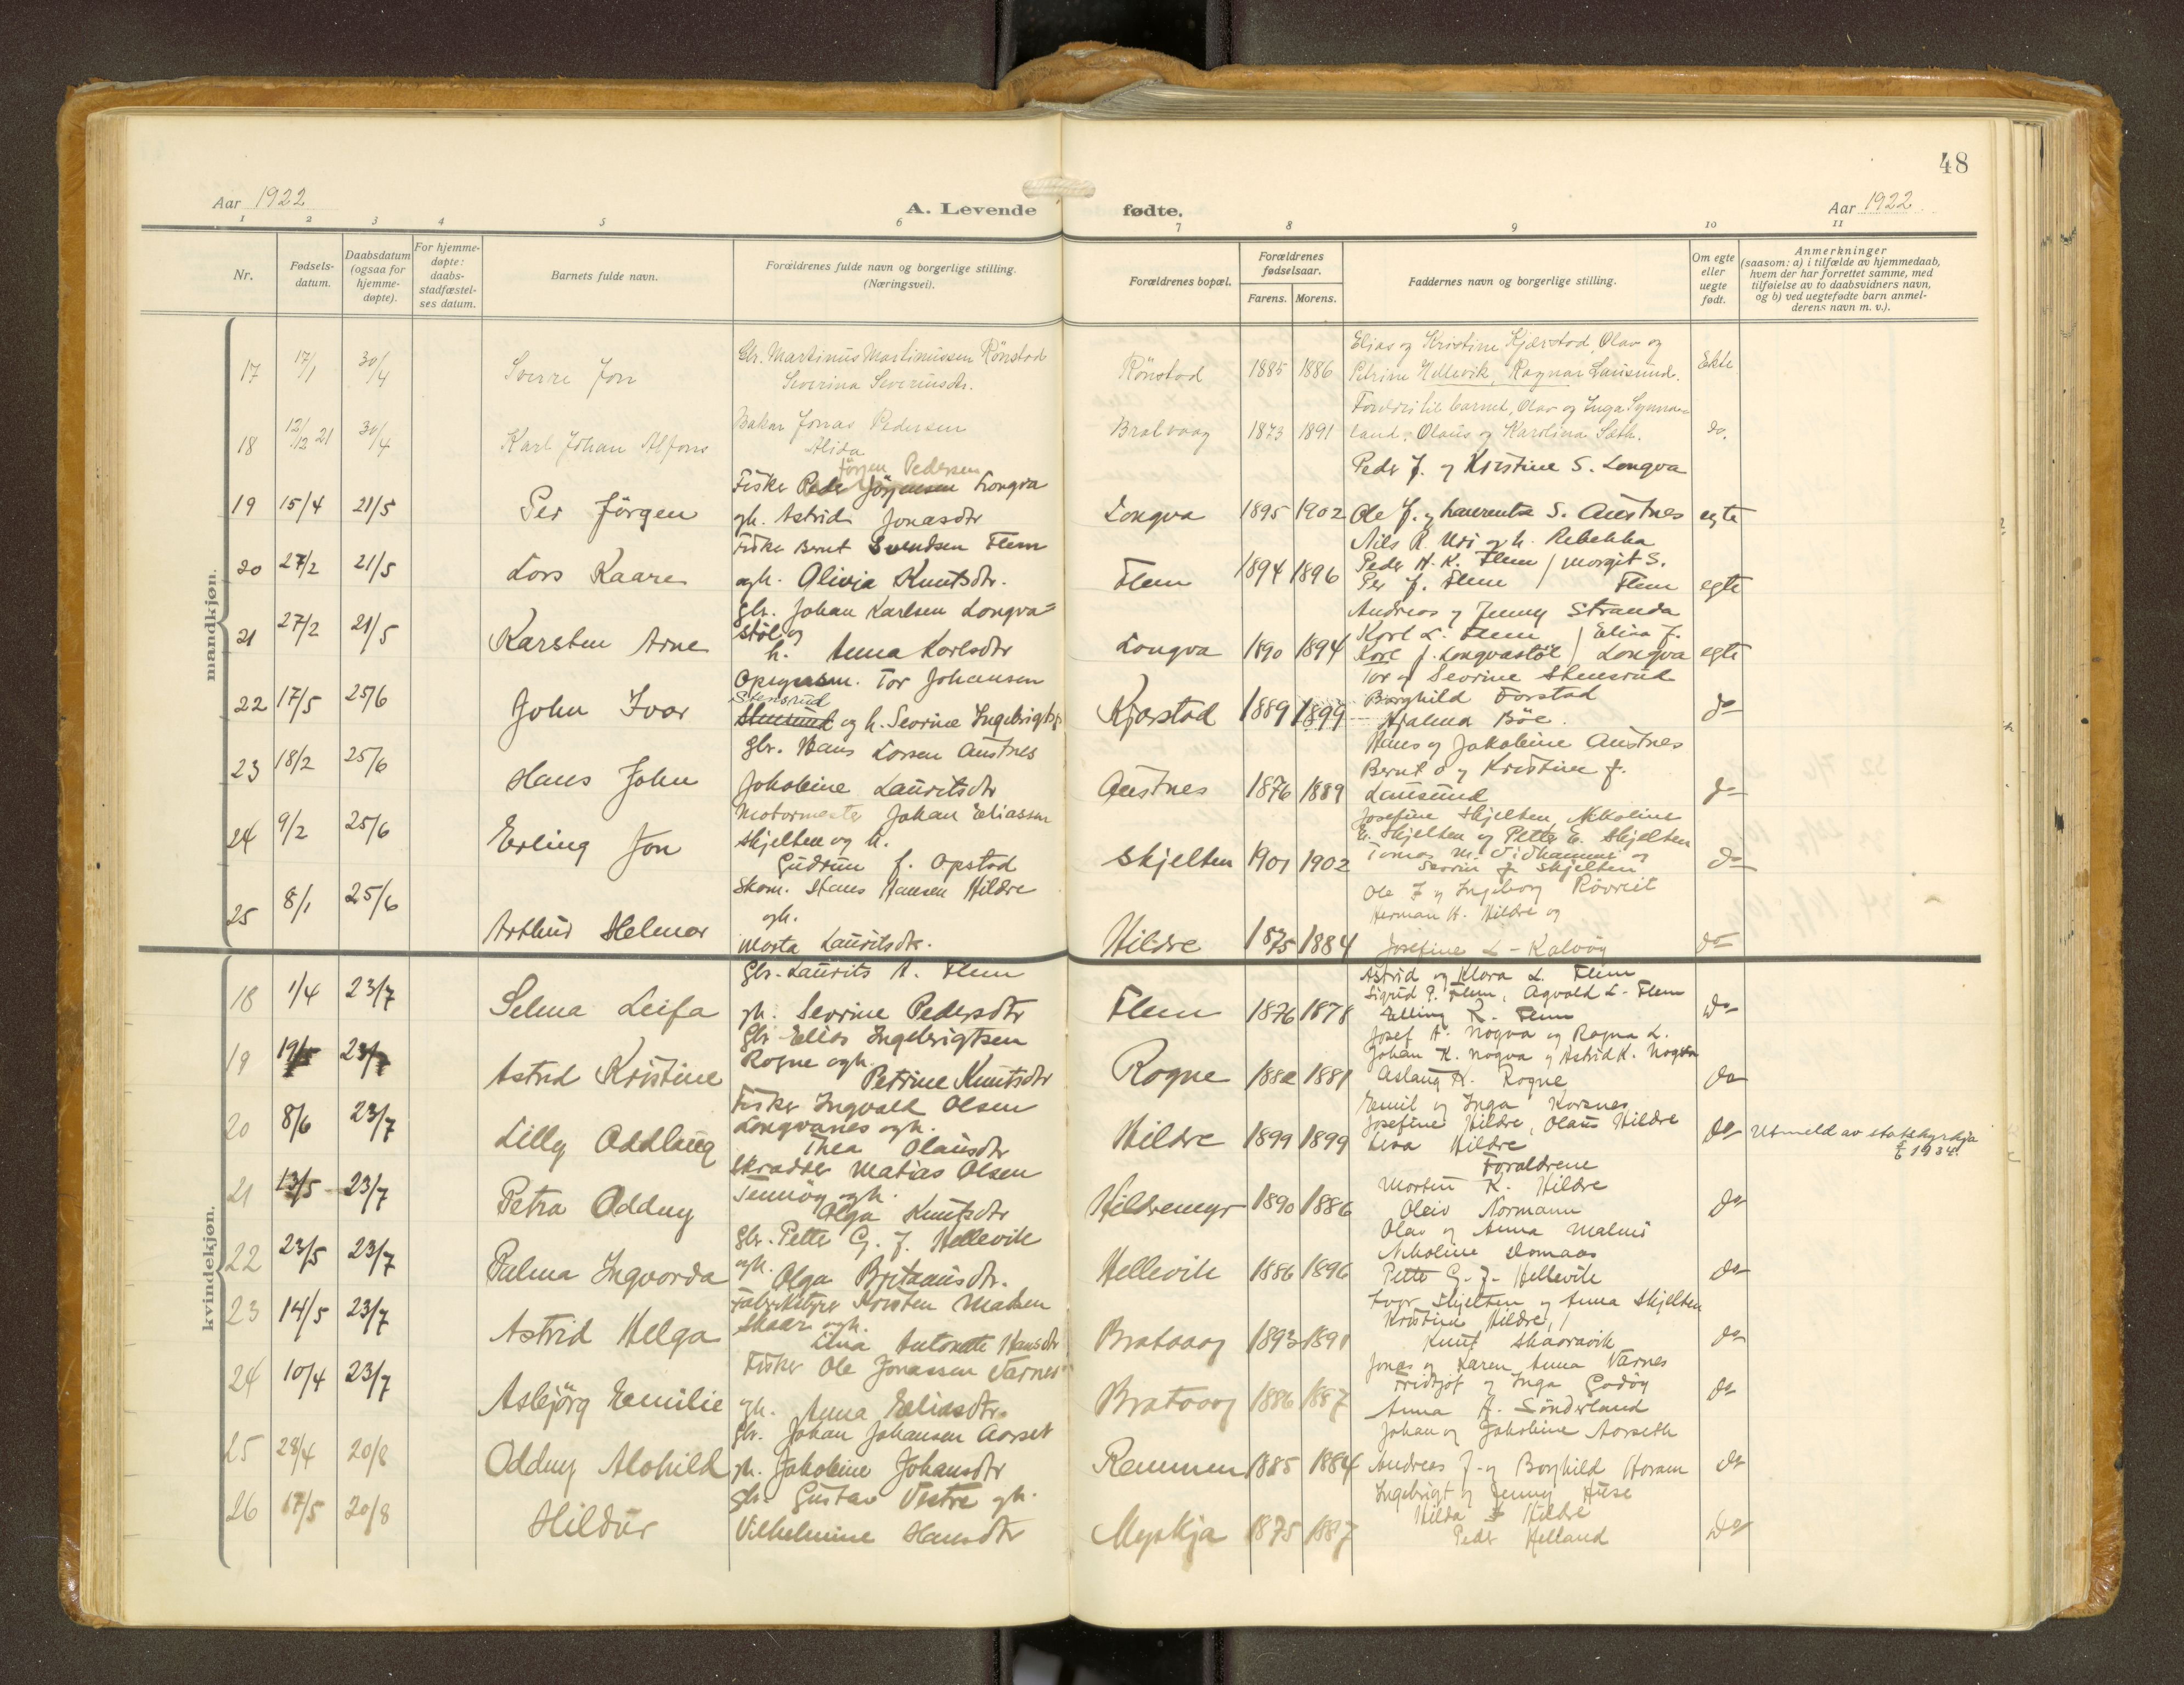 48
Aar 1922
A. Levende fødte.
Aar 1922
1 2 3 4 5 6 7 8 9 10 11
Nr.
Fødsels-
datum.
Daabsdatum
(ogsaa for
hjemme-
døpte).
For hjemme-
døpte:
daabs-
stadfæstel-
ses datum.
Barnets fulde navn.
Forældrenes fulde navn og borgerlige stilling.
(Næringsvei).
Forældrenes bopæl.
Forældrenes
fødselsaar.
Farens. Morens.
Faddernes navn og borgerlige stilling.
Om egte
eller
uegte
født.
Anmerkninger
(saasom: a) i tilfælde av hjemmedaab,
hvem der har forrettet samme, med
tilføielse av to daabsvidners navn,
og b) ved uegtefødte barn anmel-
derens navn m. v.).
mandkjøn.
17 17/1 30/4 Sverre Jon
Gbr. Martinus Martinussen Rönstad
Severina Severinsdr.
Rönstad 1885 1886
Elias og Kristine Kjærstad, Olav og
Petrine Hellevik, Ragnar Lausund.
Ekte
18 12/12 21 30/4 Karl Johan Alfons
Baker Jonas Pedersen
Alida
Bratvaag 1873 1891
Foreldri til barnet, Olav og Inga Synna-
land, Olaus og Karolina Sæth.
do.
19 15/4 21/5 Per Jörgen
Jörgen Pedersen
Fisker Peder Jörgensen Longva
ogh. Astrid Jonasdtr
Longva 1895 1902
Peder J. og Kristine S. Longva
Ole J. og Laurentse S. Austnes
egte
20 27/2 21/5 Lars Kaare
Fisker Bernt Svendsen Flem
ogh. Olivia Knutsdtr.
Flem 1894 1896
Nils R. Uri og h. Rebekka
Peder H. K. Flem / Margit S.
Per J. Flem Flem
egte
21 27/2 21/5 Karsten Arne
Gbr. Johan Karlsen Longva-
stöl og
h. Anna Karlsdtr
Longva 1890 1894
Andreas og Jenny Stranda
Karl L. Flem / Elisa J.
Karl J. Longvastöl / Longva
egte
22 17/5 25/6 John Ivar
Opsynsm. Tor Johansen
Stensrud
og h. Sevrine Ingebrigtsd.
Kjærstad 1889 1899
Tor og Sevrine Stensrud
Borghild Forstad
Hjalma Böe.
do
23 18/2 25/6 Hans John
Gbr. Hans Larsen Austnes
Jakobine Lauritsdtr
Austnes 1876 1889
Hans og Jakobine Austnes
Bernt O og Kristine J.
Lausund
do
24 9/2 25/6 Erling Jon
Motormester Johan Eliassen
Skjelten og h.
Gudrun f. Opstad
Skjelten 1901 1902
Josefine Skjelten, Nikoline
E. Skjelten og Petter E. Skjelten
Tomas M. Vidhammer og
Sevrin J. Skjelten
do
25 8/1 25/6 Arthur Helmer
Skom. Hans Hansen Hildre
ogh.
Marta Lauritsdtr.
Hildre 1875 1884
Ole J og Ingeborg Rövreit
Herman H. Hildre og
Josefine L - Kalvög
do
kvindekjøn.
18 1/4 23/7 Selma Leifa
Gbr. Laurits A. Flem
ogh. Sevrine Pedersdtr
Flem 1876 1878
Astrid og Klara L. Flem
Sigrid P. Flem, Agvald L. Flem
Elling R. Flem
do
19 19/5 23/7 Astrid Kristine
Gbr Elias Ingebrigtsen
Rogne ogh.
Petrine Knutsdtr
Rogne 1882 1881
Josef A. Nogva og Ragna L.
Johan K. Nogva og Astrid K. Nogva
Aslaug K. Rogne
do
20 8/6 23/7 Lilly Oddlaug
Fisker Ingvald Olsen
Longvanes ogh.
Thea Olausdtr
Hildre 1899 1899
Emil og Inga Korsnes
Josefine Hildre, Olaus Hildre
Lina Hildre
do
Utmeld av statskyrkja
1934.
21 13/5 23/7 Petra Oddny
Skrædder Matias Olsen
Tennöy ogh.
Olga Knutsdtr
Hildremyr 1890 1886
Forældrene
Morten K. Hildre
Oleiv Normann
do
22 23/5 23/7 Palma Ingvarda
Gbr. Petter G. J. Hellevik
ogh.
Olga Britanusdtr.
Hellevik 1886 1896
Olav og Anna Malmö
Nikoline Domaas
Petter G. J. Hellevik
do
23 14/5 23/7 Astrid Helga
Fabrikstyrer Kristen Madsen
Skaar ogh.
Lina Antonette Hansdtr
Bratvaag 1893 1891
Ivar Skjelten og Anna Skjelten
Kristine Hildre,
Knut Skaaravik
do
24 10/4 23/7 Asbjörg Emilie
Fisker Ole Jonassen Varnes
ogh. Anna Eliasdtr.
Bratvaag 1886 1887
Jonas og Karen Anna Varnes
Fridtjof og Inga Godöy
Anna A. Sönderland
do
25 28/4 20/8 Oddny Alohild
Gbr. Johan Johansen Aarset
ogh. Jakobine Johansdtr
Remmen 1885 1884
Johan og Jakobine Aarseth
Andreas J. og Borghild Haram
do
26 17/5 20/8 Hildur
Gbr. Gustav Vestre ogh.
Vilhelmine Hansdtr
Myskja 1875 1887
Ingebrigt og Jenny Huse
Hilda J Hildre
Peder Helland
do